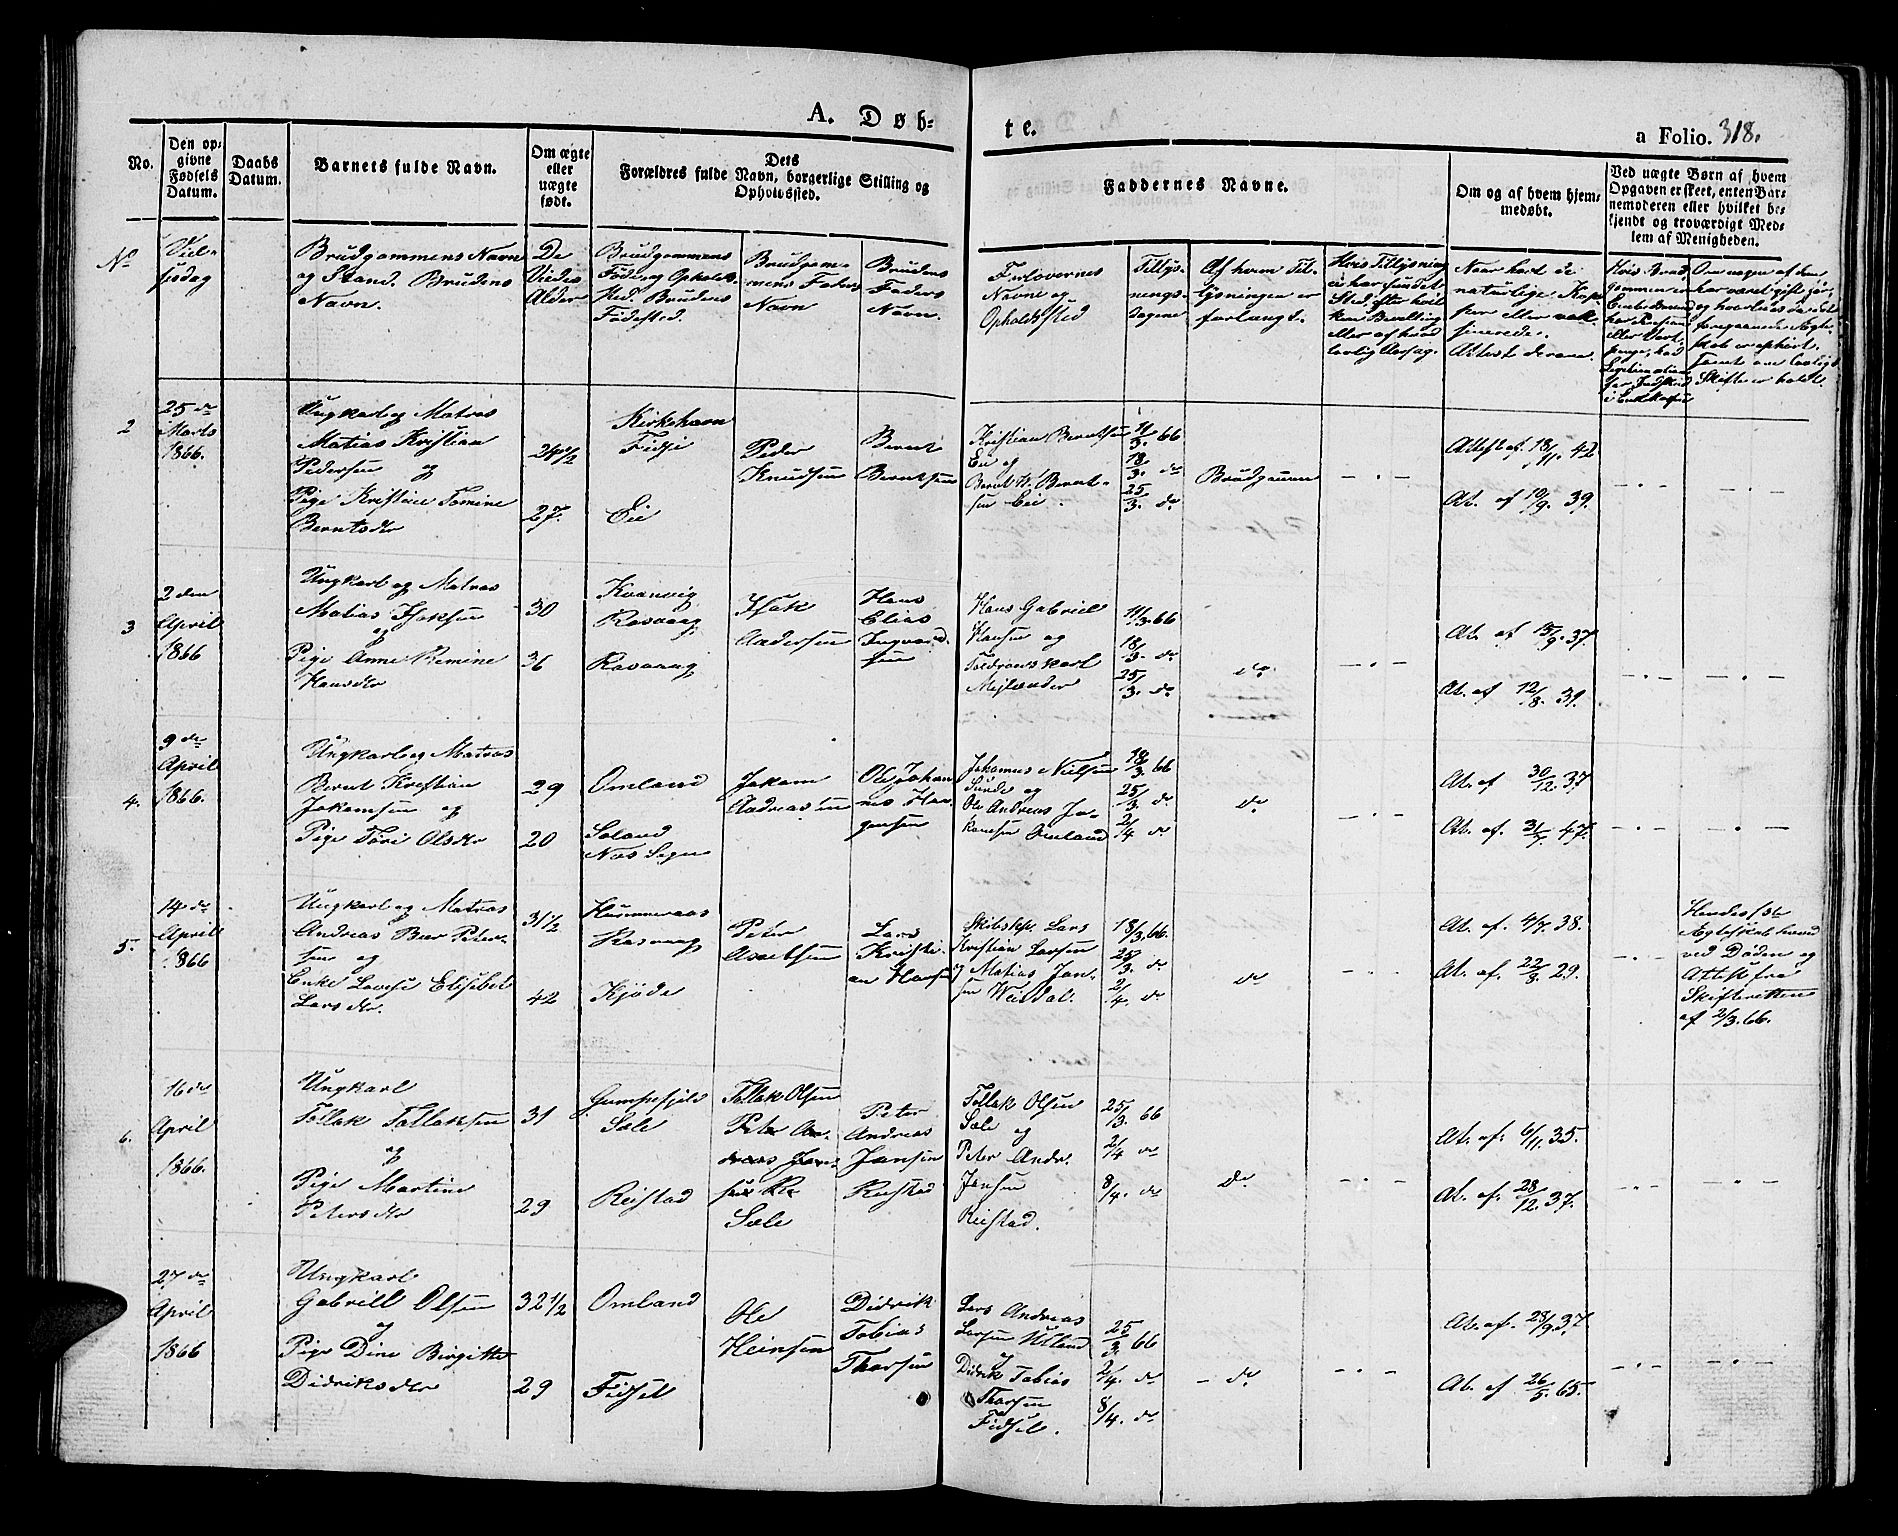 A. Døb-
te.
a Folio. 318.
No.
Den op-
givne
Fødsels
Datum.
Daabs
Datum.
Barnets fulde Navn.
Om ægte
eller
uægte
født.
Dets
Forældres fulde Navn, borgerlige Stilling og
Opholdssted.
Faddernes Navne.
Om og af hvem hjem-
medøbt.
Ved uægte Børn af hvem
Opgaven er skeet, enten Bar-
nemoderen eller hvilket be-
kjendt og troværdigt Med-
lem af Menigheden.
No
Viel-
sesdag
Brudgommens Navn
og Stand. Brudens
Navn.
De
Viedes
Alder
Brudgommens
Føde og Opholds-
sted. Brudens
Fødested.
Brudgom-
mens Faders
Navn
Brudens
Faders
Navn.
Forlovernes
Navne og
Opholdssted
Tillys-
nings-
dagene
Af hvem Til-
lysningen er
forlangt.
Hvis Tillysning
ei har fundet
Sted, efter hvil-
ken Bevilling
eller af hvad
lovlig Aarsag.
Naar havt de
naturlige Kop-
per eller vak-
sinerede.
Attest derom.
2
25 de
Marts
1866.
Ungkarl og Matros
Matias Kristian
Pedersen og
Pige Kristine Tomine
Berntsdtr
24 1/2
27.
Kirkehavn
Fidse
Eie
Peder
Knudsen
Bernt
Berntsen
Kristian Berntsen
Eie og
Bernt H. Bernt-
sen Eie.
11/3. 66
18/3. do
25/3. do
Brudgommen
- . -
Attest af 18/11. 42
At. af 10/9. 39.
- . -
- . -
3
2 den
April
1866
Ungkarl og Matros
Matias Isaksen
og
Pige Anne Remine
Hansdtr
30
36
Kvanvig
Rasvaag
Rasvaag
Isak
Andersen
Hans
Elias
Ingvald-
sen
Hans Gabriel
Hansen og
Karl
Mejlænder
11/3. 66
18/3. do
25/3. do
do
- . -
At. af 15/9. 37.
At. af 12/8. 39.
- . -
- . -
4.
9 de
April
1866.
Ungkarl og Matros
Bernt Kristian
Jakobsen og
Pige Tøri Olsdtr
29
20
Omland
Søland
Nes Sogn
Jakom
Andreassen
Ole Johan
nes Haa-
gensen
Johannes Nielsen
Sunde og
Ole Andreas Ja-
komsen Omland
18/3. 66
25/3. do
2/4 do
do
At. af 30/12. 37
At. af. 31/7. 47.
- . -
- . -
5.
14 de
April
1866
Ungkarl og Matros
Andreas Beer Peter-
sen og
Enke Lovise Elisabet
Larsdtr.
31 1/2
42
Hummeraas
Rasvaag
Kjøde
Peter
Aanetsen
Lars
Kristi-
an Hansen
Skibskp. Lars
Kristian Larsen
og Matias Jan-
sen Veisdal.
18/3. 66.
25/3. do
2/4. do
do
- . -
At. af. 4/7. 38.
At. af. 22/8. 29.
- . -
Hendes 1ste
Ægteskab hævet
ved Døden og
Attest fra
Skifteretten
af 2/3. 66.
6.
16 de
April
1866.
Ungkarl
Tollak Tollaksen
og
Pige Martine
Petersdtr
31
29
Gumpefjeld
Sæle
Reistad
Tollak Olsen
Peter An-
dreas Jan-
sen Re
Sæle
Peter
Andreas
Jansen
Reistad
Tollak Olsen
Sæle og
Peter Andr.
Jansen
Reistad.
25/3. 66
2/4 do
8/4. do
do
- . -
At. af. 6/11. 35.
At. af. 28/12. 37.
- . -
- . -
27 de
April
1866
Ungkarl
Gabriell Olsen
og
Pige Dine Birgitte
Didriksdtr
32 1/2
29
Omland
Fidsel
Ole
Heinsen
Didrik
Tobias
Thorsen
Lars Andreas
Larsen Ulland
og
Didrik Tobias
Thorsen
Fidsel.
25/3. 66
2/4. do
8/4. do
- do
- . -
At. af. 28/9. 37
At. af 26/5. 65.
- . -
- . -